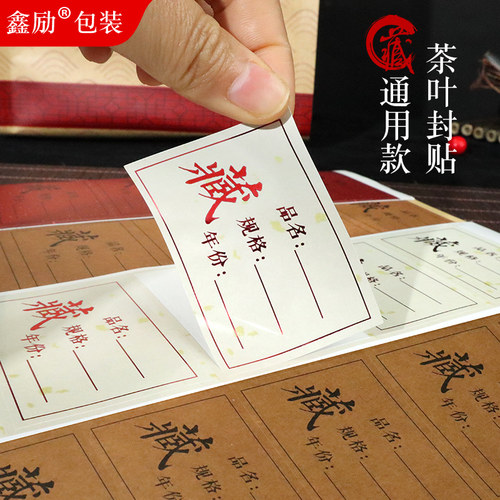 鑫励®包装
藏
茶叶封贴
通用款
藏
品名：
规格：
年份：
藏
品名：
规格：
年份：
藏
品名：
规格：
年份：
藏
品名：
规格：
年份：
藏
品名：
规格：
年份：
藏
品名：
规格：
年份：
藏
品名：